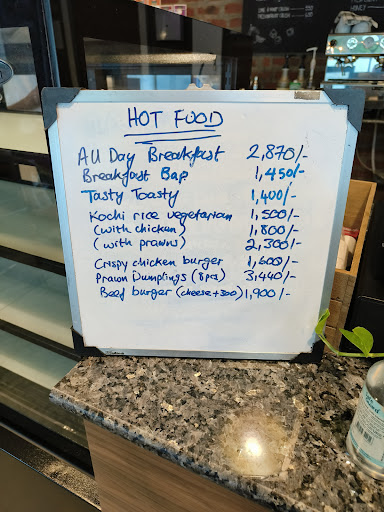 HOT FOOD
All Day Breakfast 2,870/-
Breakfast Bap 1,450/-
Tasty Toasty 1,400/-
Kochi rice vegetarian 1,500/-
(with chicken) 1,800/-
(with prawns) 2,300/-
Crispy chicken burger 1,600/-
Prawn Dumplings (8pcs) 3,440/-
Beef burger (cheese+300) 1,900/-